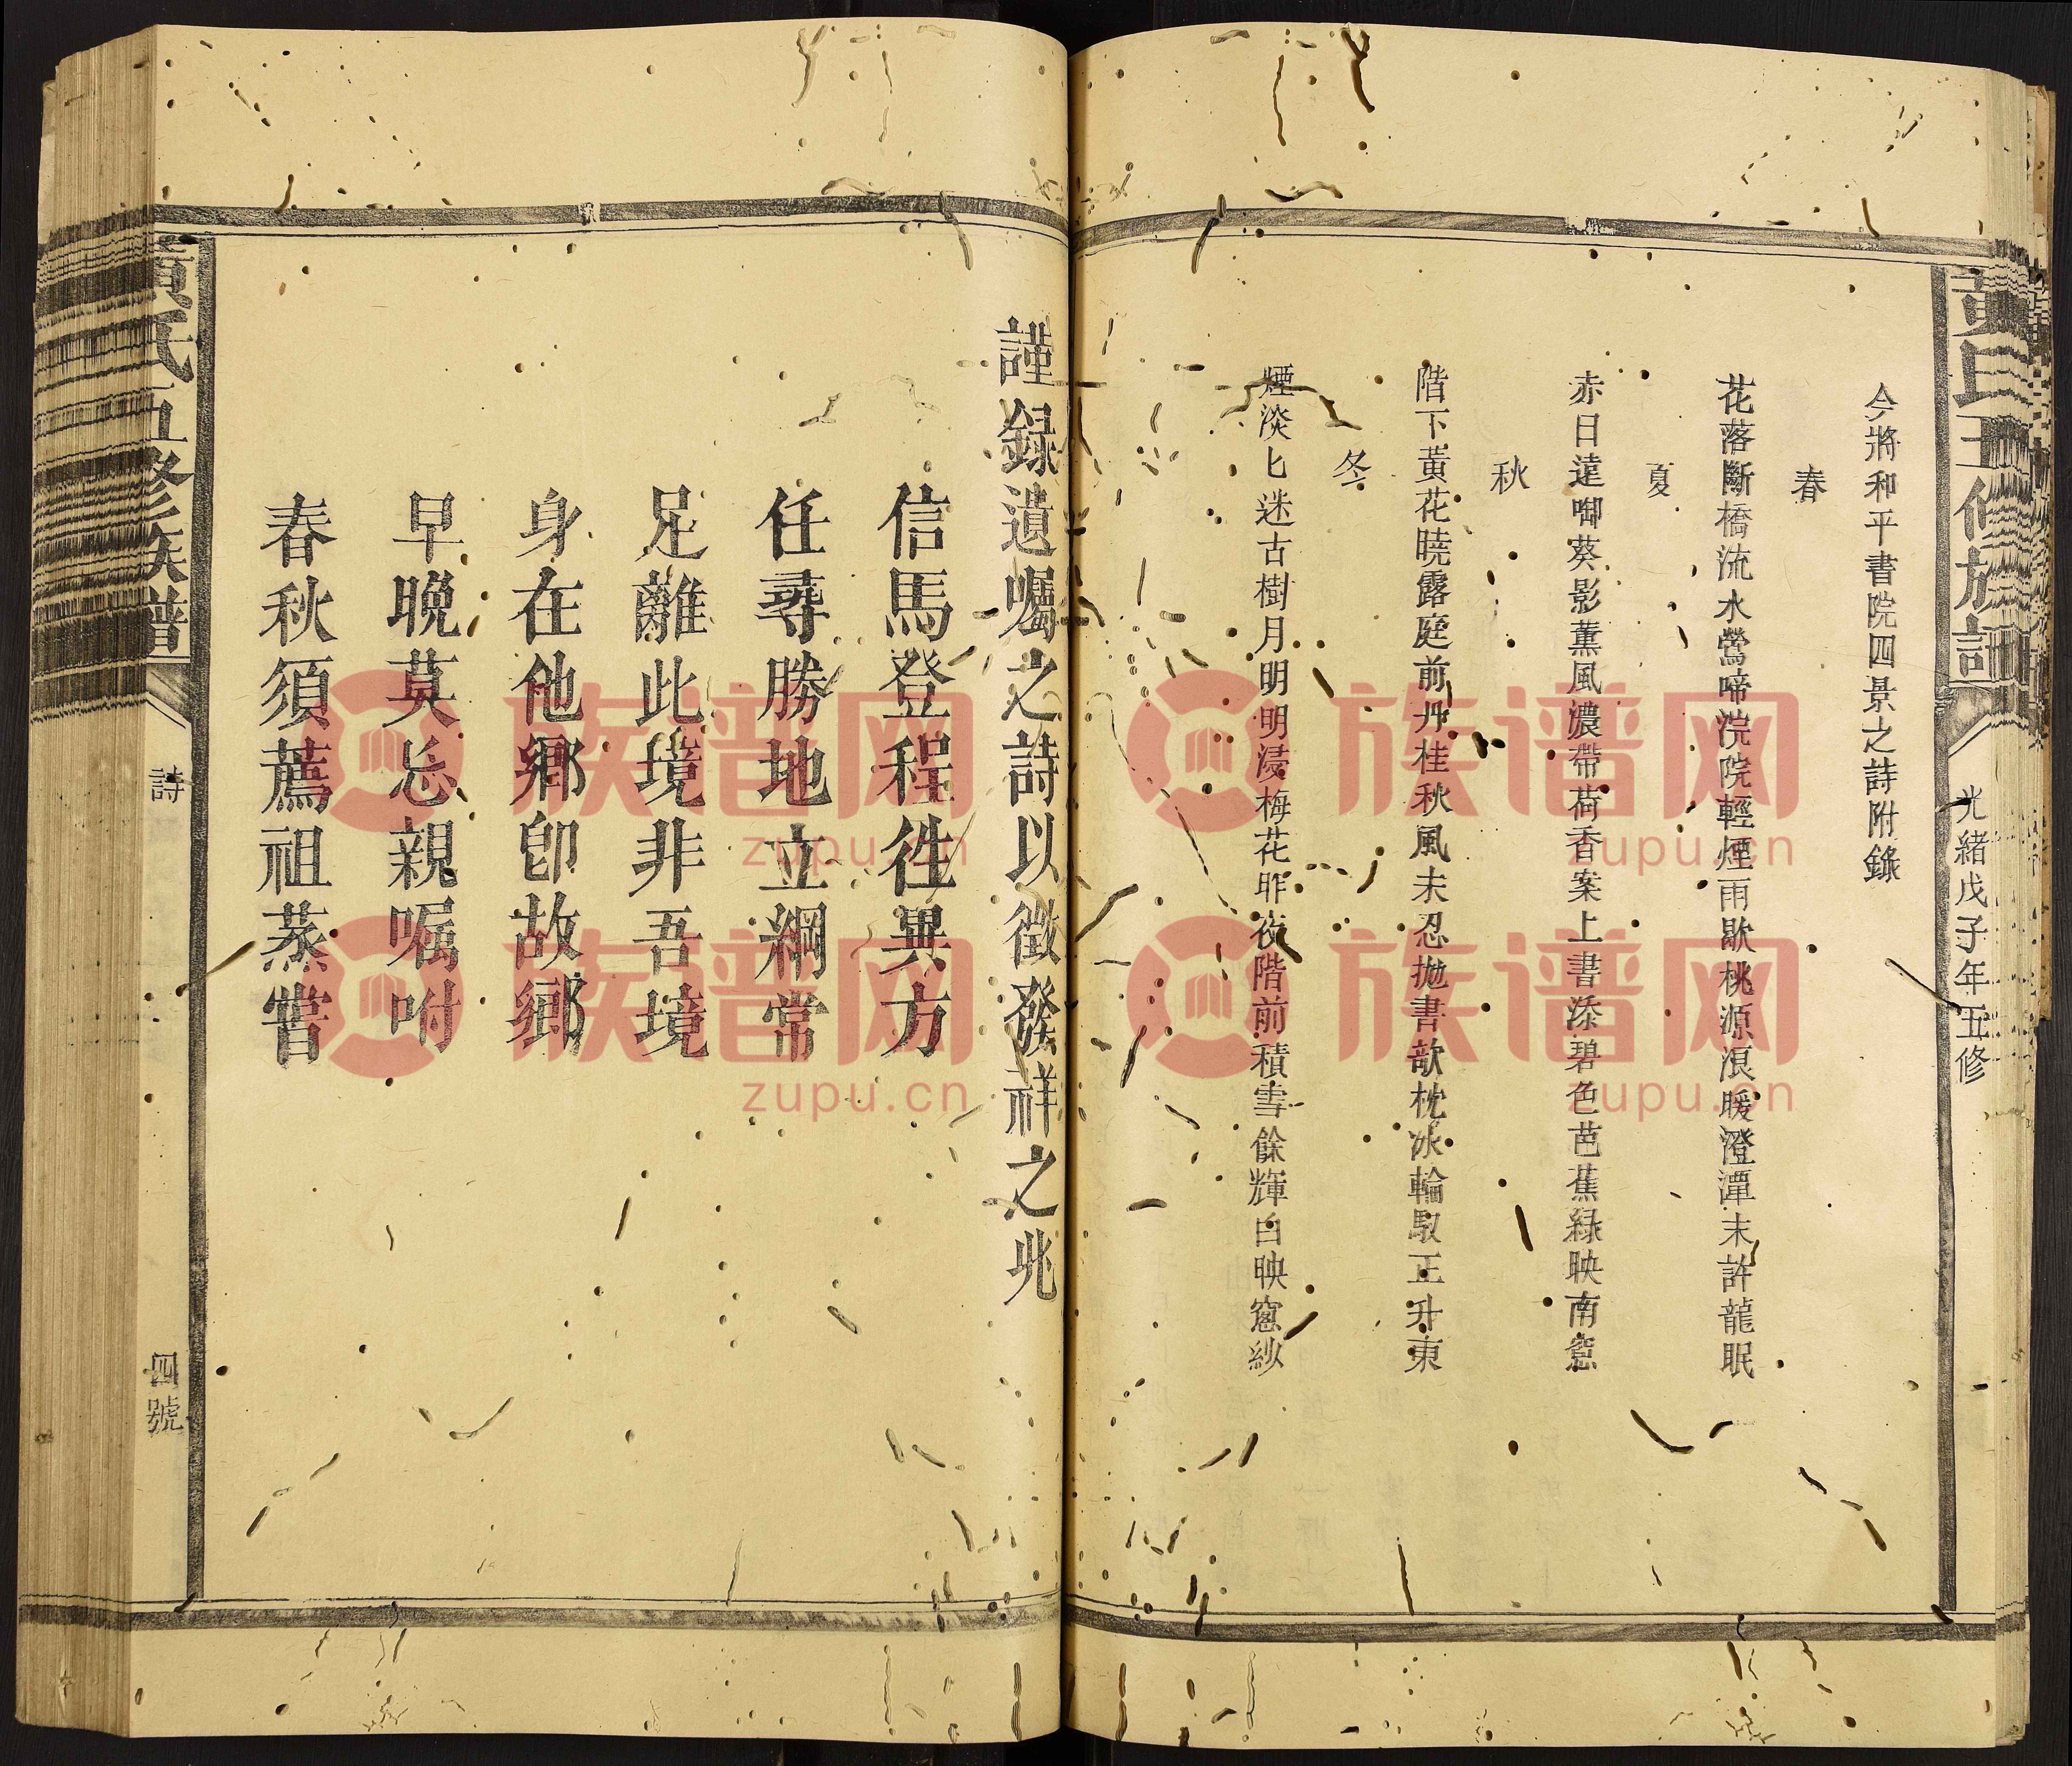 黃氏五修族譜
光緒戊子年五修
今將和平書院四景之詩附錄
春
花落斷橋流水鶯啼浣院輕煙雨歇桃源浪暖澄潭未許龍眠
夏
赤日遠啣葵影薰風濃帶荷香案上書添碧色芭蕉緑映南窓
秋
階下黃花曉露庭前丹桂秋風未忍拋書欹枕冰輪馭正升東
冬
煙淡匕迷古樹月明明浸梅花昨夜階前積雪餘輝白映窓紗
謹録遺囑之詩以徵發祥之兆
信馬登程徃異方
任尋勝地立綱常
足離此境非吾境
身在他鄉卽故鄉
早晩莫忘親嘱咐
春秋須薦祖蒸嘗
黃氏五修族譜
詩
四號
族谱网
zupu.cn
族谱网
zupu.cn
族谱网
zupu.cn
族谱网
zupu.cn